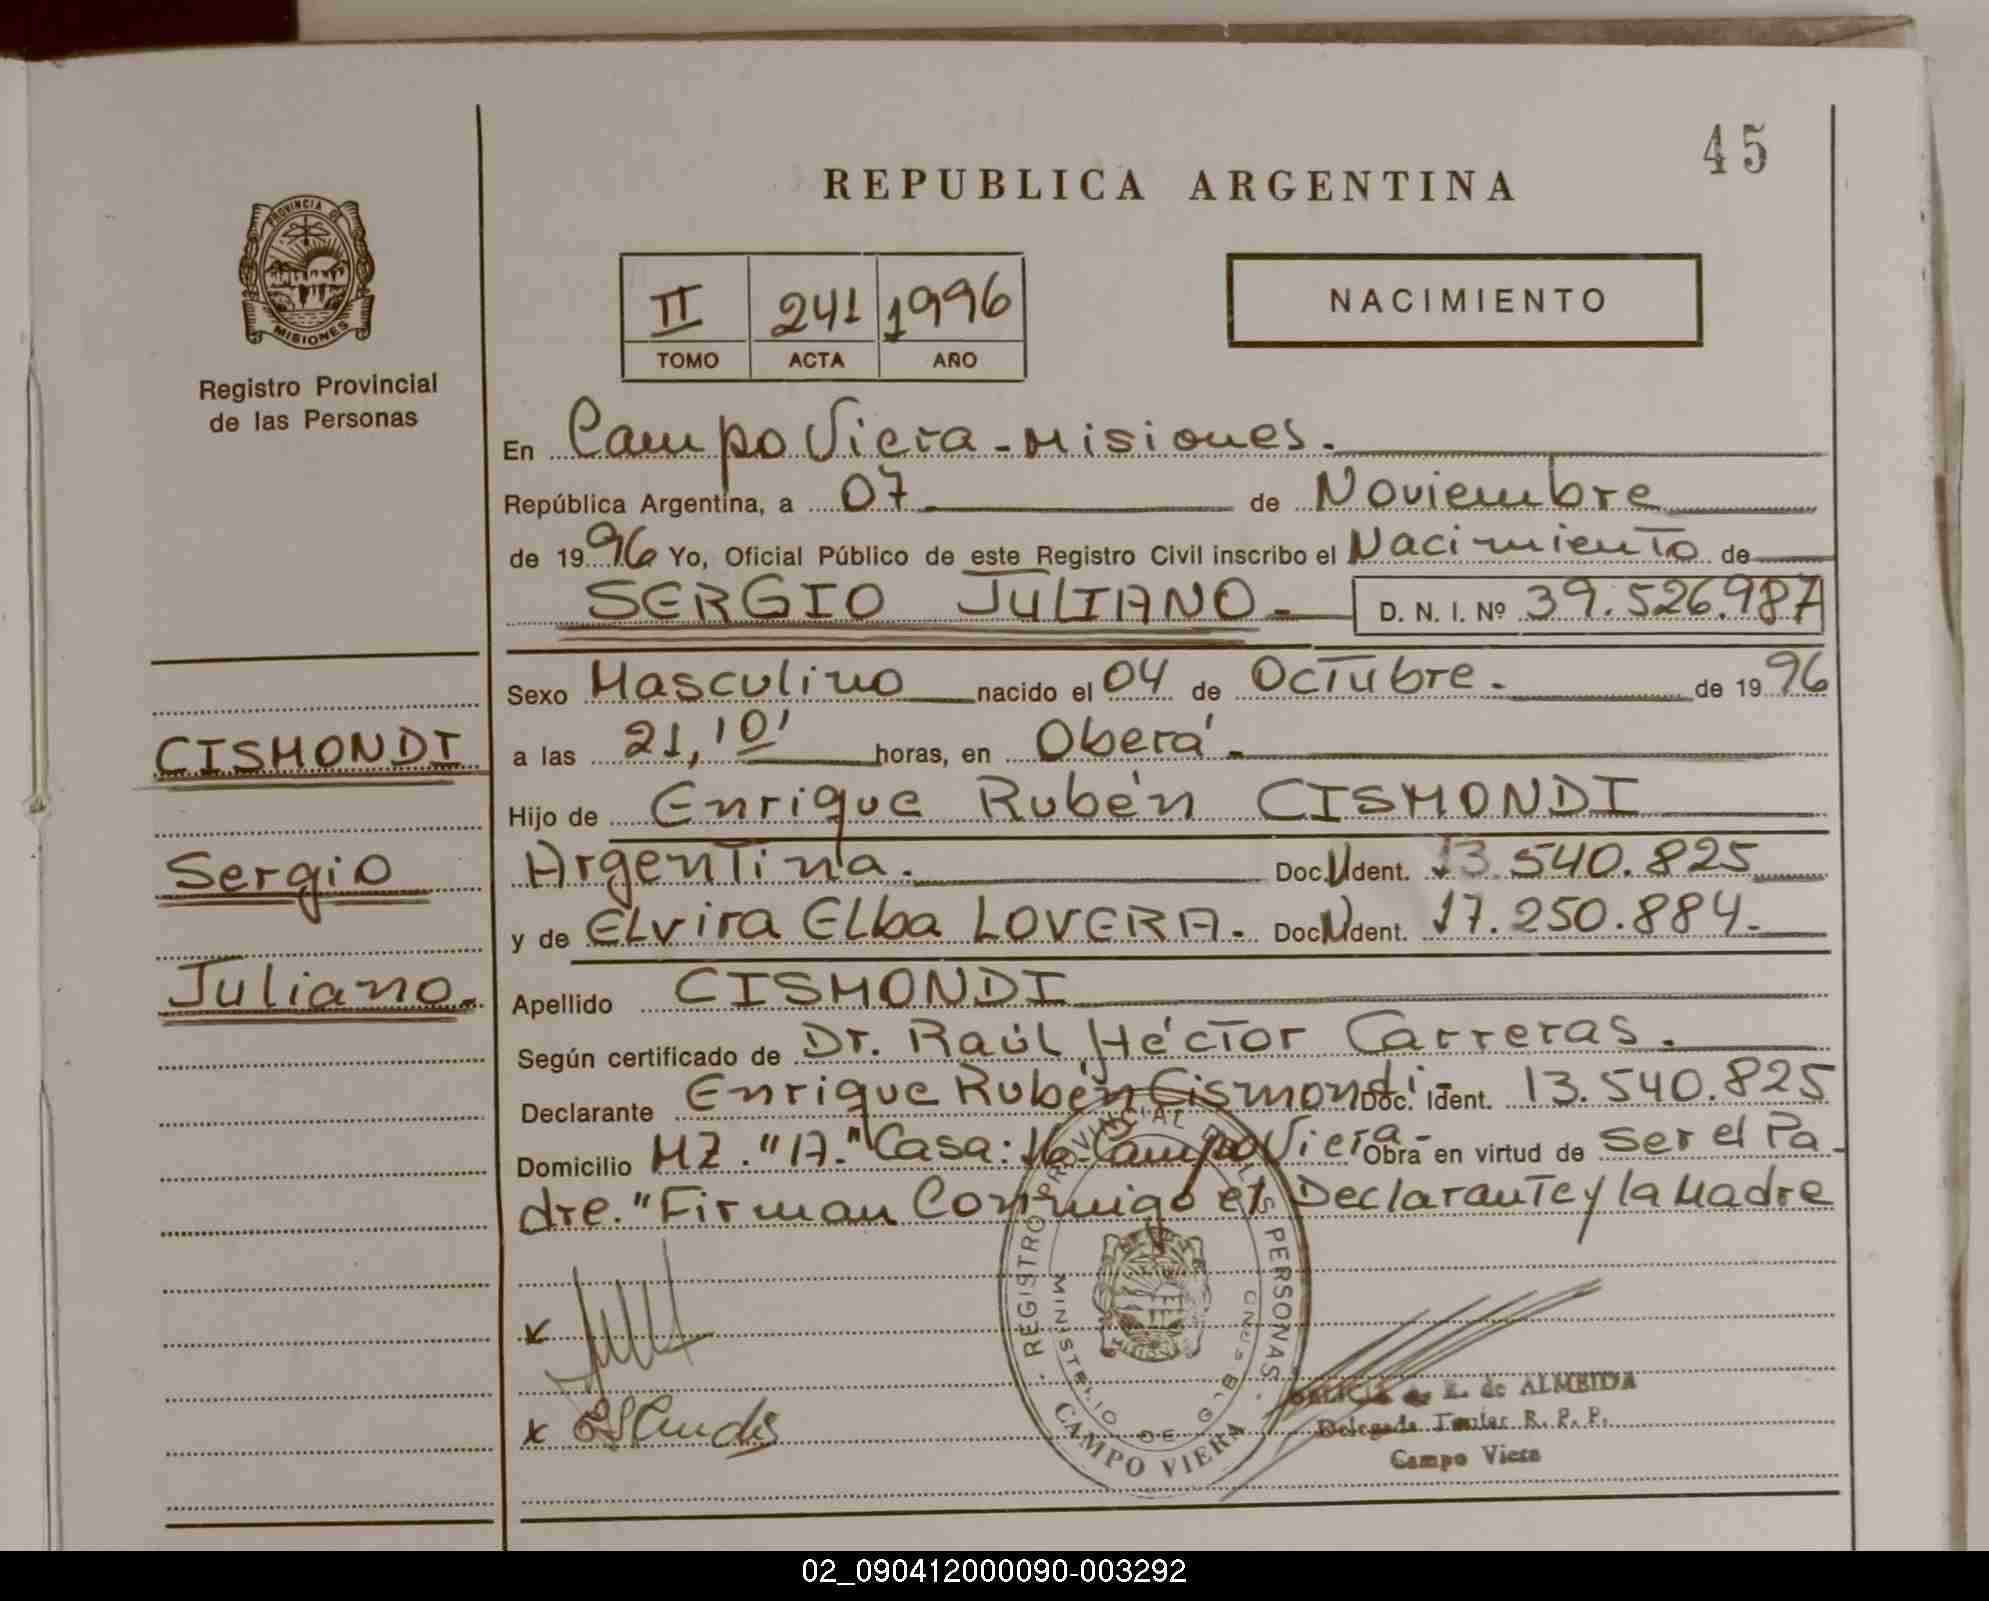 45
REPUBLICA ARGENTINA
PROVINCIA DE
MISIONES
Registro Provincial
de las Personas
II 241 1996
TOMO ACTA AÑO
NACIMIENTO
En Campo Viera - Misiones.
República Argentina, a 07 de Noviembre
de 1996 Yo, Oficial Público de este Registro Civil inscribo el Nacimiento de
SERGIO JULIANO - D. N. I. Nº 39.526.987
Sexo Masculino nacido el 04 de Octubre. de 1996
a las 21,10' horas, en Oberá.
Hijo de Enrique Rubén CISMONDI
Argentina. Doc. Ident. 13.540.825
y de Elvira Elba LOVERA. Doc. Ident. 17.250.884.
Apellido CISMONDI
Según certificado de Dr. Raúl Héctor Carreras.
Declarante Enrique Rubén Cismondi - Doc. Ident. 13.540.825
Domicilio MZ. "A." Casa: 16 - Campo Viera - Obra en virtud de Ser el Pa-
dre. "Firman Conmigo el Declarante y la Madre
CISMONDI
Sergio
Juliano.
x
x
REGISTRO PROVINCIAL DE LAS PERSONAS
MINISTERIO DE GOB.
CAMPO VIERA
E. de ALMEIDA
Delegada Titular R. P. P.
Campo Viera
02_090412000090-003292